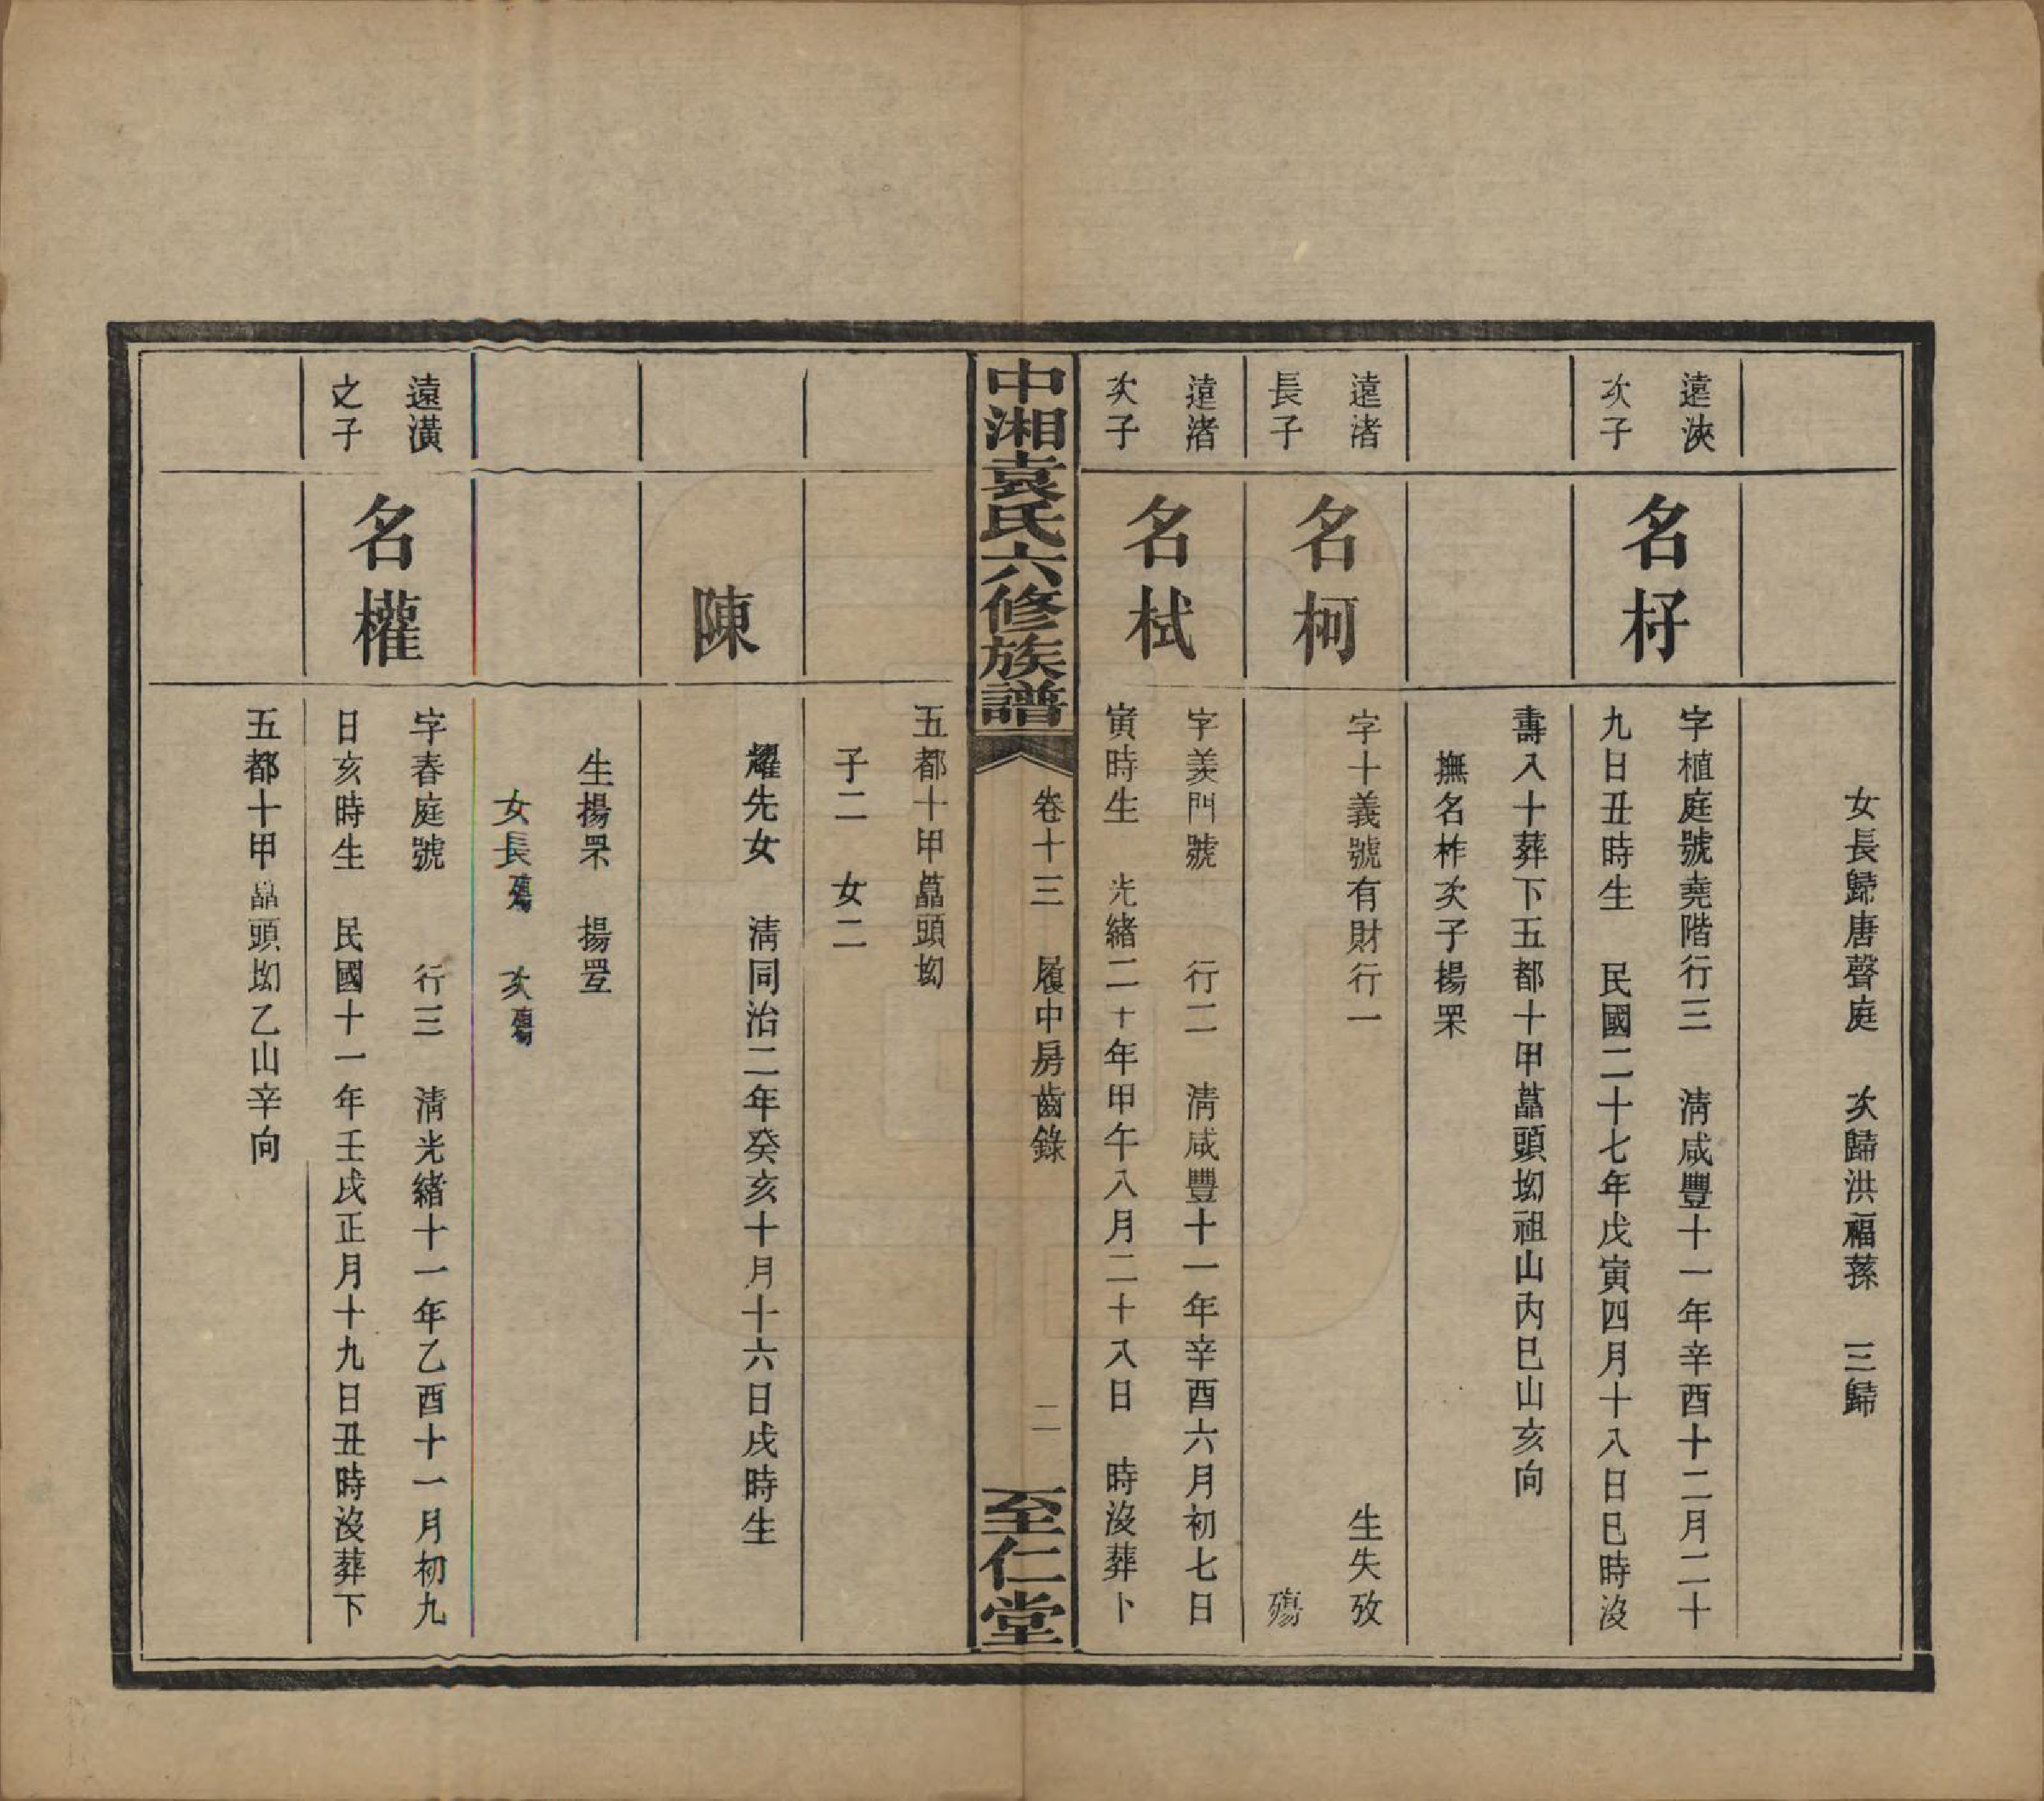 女長歸唐聲庭　次歸洪福蓀　三歸
遠浹
次子
名杍
字植庭號堯階行三　清咸豐十一年辛酉十二月二十
九日丑時生　民國二十七年戊寅四月十八日巳時沒
壽八十葬下五都十甲藠頭坳祖山內巳山亥向
撫名柞次子揚罘
遠渚
長子
名柯
字十義號有財行一　生失攷
殤
遠渚
次子
名栻
字羑門號　行二　清咸豐十一年辛酉六月初七日
寅時生　光緒二十年甲午八月二十八日　時沒葬卜
中湘袁氏六修族譜
卷十三　履中房齒錄
二
至仁堂
五都十甲藠頭坳
子二　女二
陳
耀先女　清同治二年癸亥十月十六日戌時生
生揚罘　揚罣
女長殤　次殤
遠潢
之子
名權
字春庭號　行三　清光緒十一年乙酉十一月初九
日亥時生　民國十一年壬戌正月十九日丑時沒葬下
五都十甲藠頭坳乙山辛向